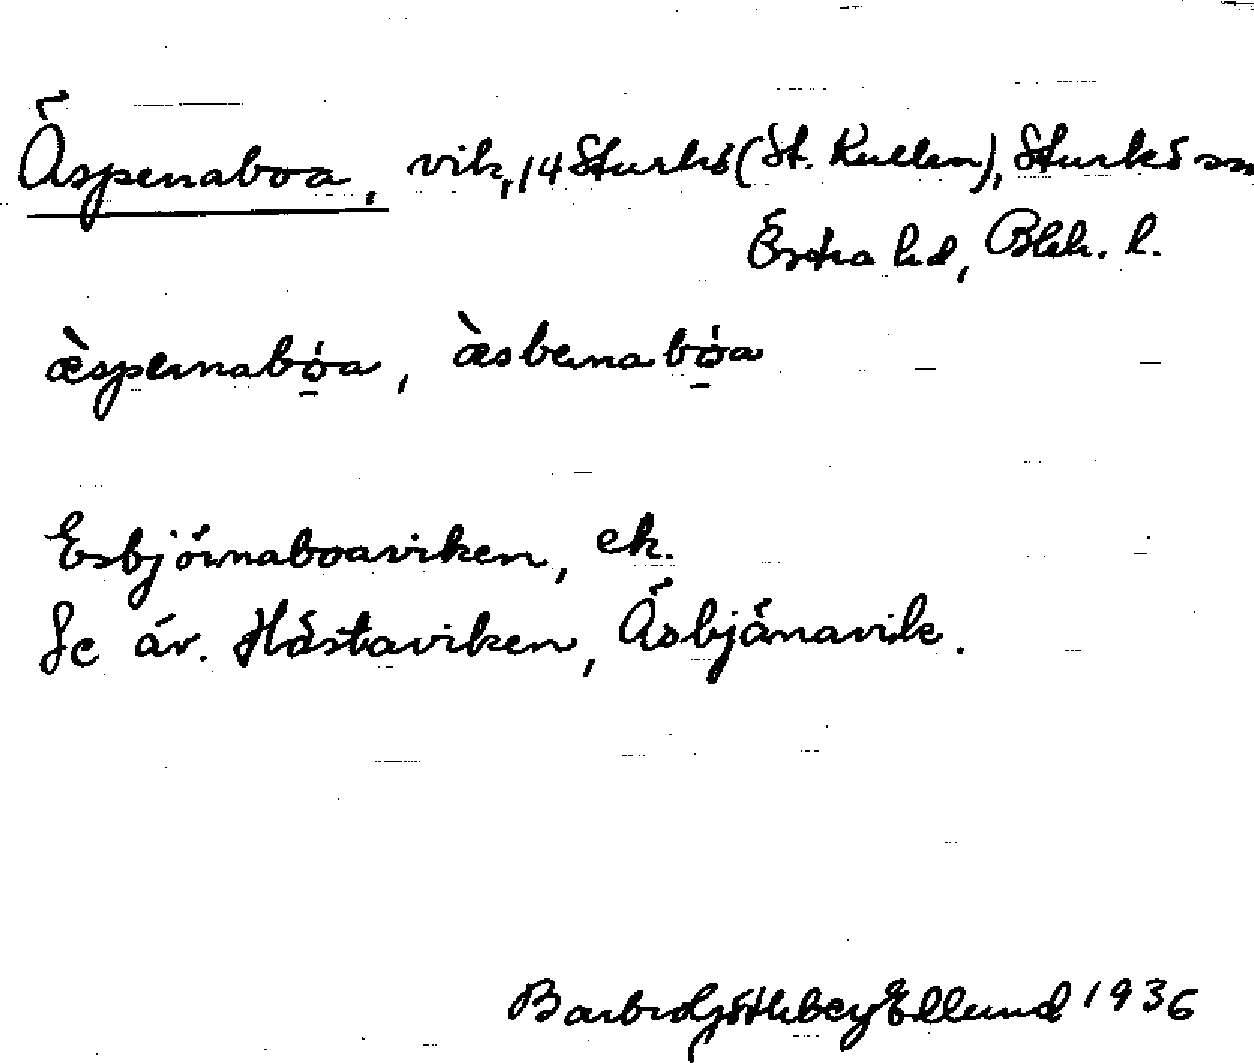 Äspenaboa, vik, 14 Sturkö (St. Kullen), Sturkö sn
Östra hd, Blek. l.
æ̀spernabóa, æ̀sbernabóa
Esbjörnaboaviken, ek.
Se äv. Hästaviken, Äsbjörnavik.
Barbro Edlund 1936